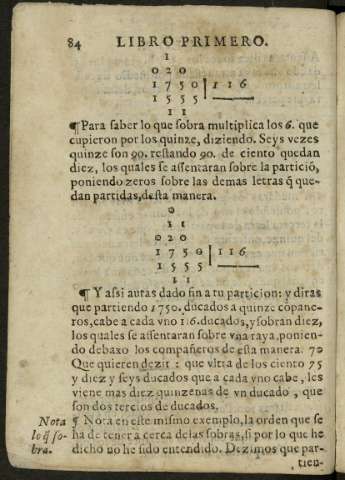 84 LIBRO PRIMERO.
1
0 2 0
1 7 5 0 | 1 1 6
1 5 5 5
1 1
¶ Para saber lo que sobra multiplica los 6. que
cupieron por los quinze, diziendo. Seys vezes
quinze son 90. restando 90. de ciento quedan
diez, los quales se assentaran sobre la particiõ,
poniendo zeros sobre las demas letras q̃ que-
dan partidas, desta manera.
0
1 1
0 2 0
1 7 5 0 | 1 1 6
1 5 5 5
1 1
¶ Y assi auras dado fin a tu particion: y diras
que partiendo 1750. ducados a quinze cõpañe-
ros, cabe a cada vno 116. ducados, y sobran diez,
los quales se assentaran sobre vna raya, ponien-
do debaxo los compañeros de esta manera. 70
Que quieren dezir: que vltra de los ciento 75
y diez y seys ducados que a cada vno cabe, les
viene mas diez quinzenas de vn ducado, que
son dos tercios de ducados.
Nota ¶ Nota en este mismo exemplo, la orden que se
lo q̃ so- ha de tener a cerca de las sobras, si por lo que he
bra. dicho no he sido entendido. Dezimos que par-
tien-